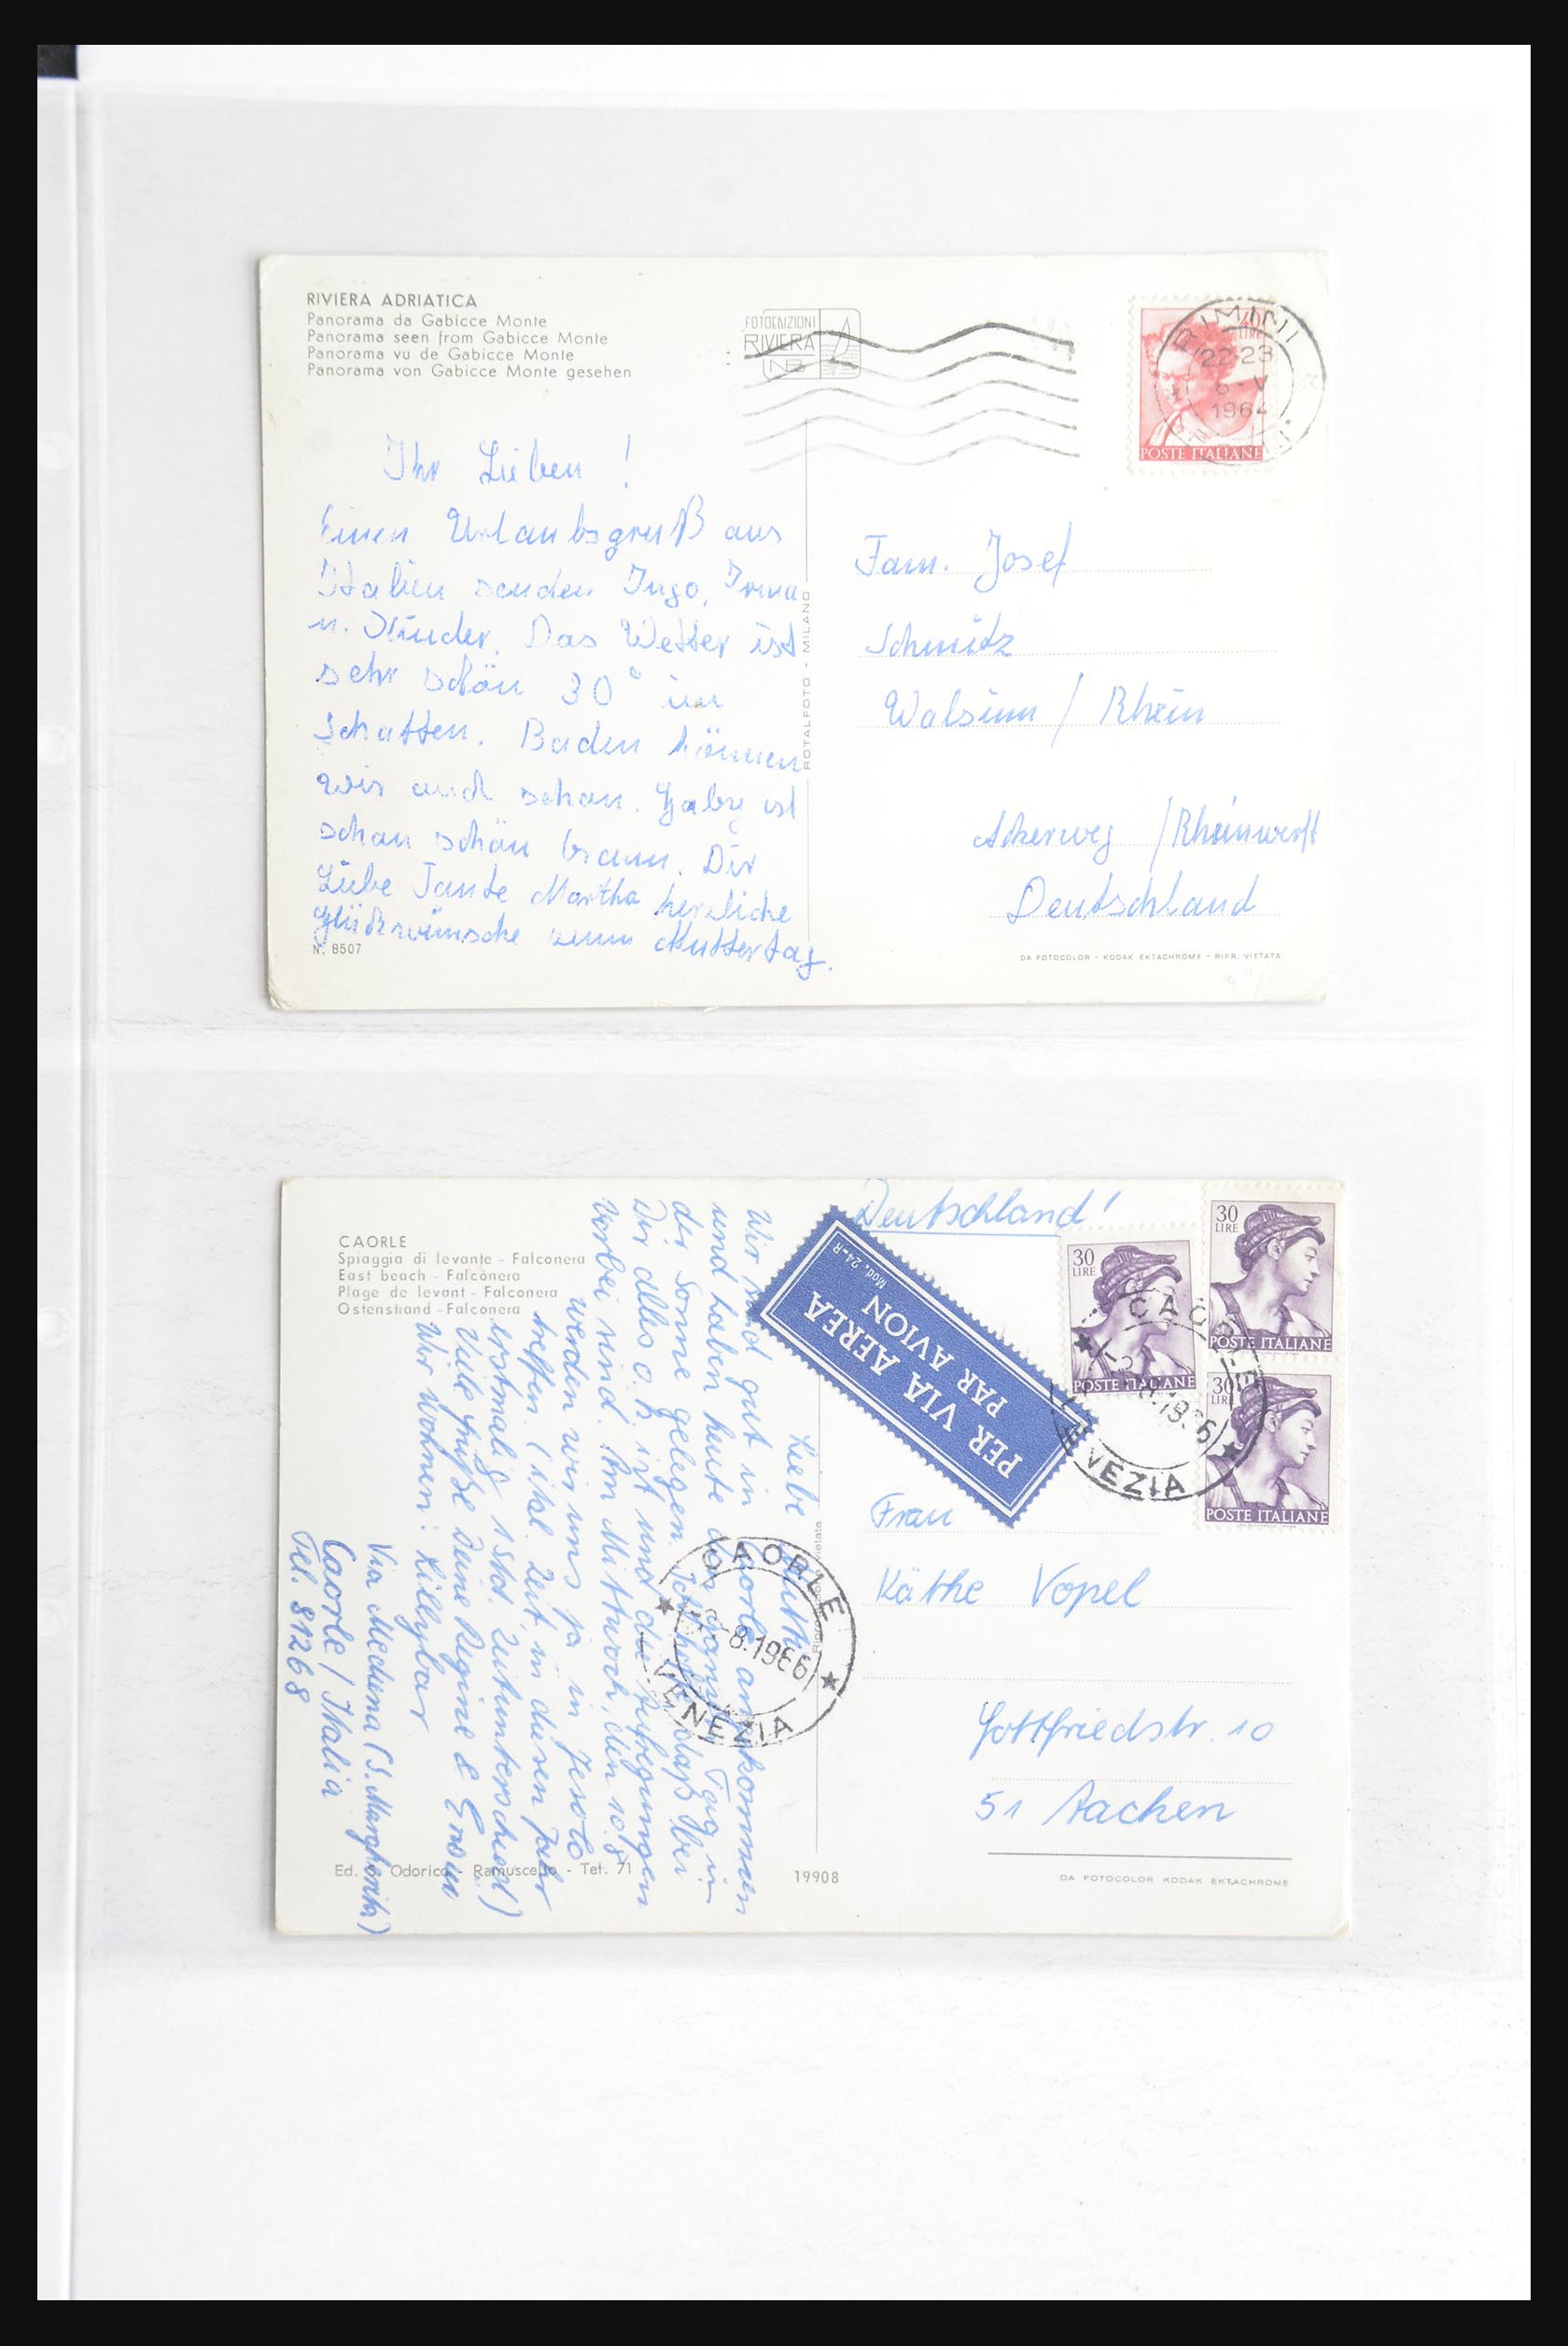 RIVIERA ADRIATICA
Panorama da Gabicce Monte
Panorama seen from Gabicce Monte
Panorama vu de Gabicce Monte
Panorama von Gabicce Monte gesehen
FOTOEDIZIONI
RIVIERA
40
LIRE
POSTE ITALIANE
RIMINI
22-23
6-V
1964
Ihr Lieben !
Einen Urlaubsgruß aus
Italien senden Ingo, Irma
u. Kinder. Das Wetter ist
sehr schön 30° im
Schatten. Baden können
wir auch schon. Gaby ist
schon schön braun. Dir
Liebe Tante Martha herzliche
Glückwünsche zum Muttertag.
N. 8507
ROTALFOTO - MILANO
Fam. Josef
Schmitz
Walsum / Rhein
Ackerweg / Rheinwerft
Deutschland
DA FOTOCOLOR - KODAK EKTACHROME - RIPR. VIETATA
CAORLE
Spiaggia di levante - Falconera
East beach - Falconera
Plage de levant - Falconera
Ostenstrand - Falconera
Liebe Käthe
Wir sind gut in Caorle angekommen
und haben heute den ganzen Tag in
der Sonne gelegen. Ich hoffe daß bei
Dir alles o.k. ist und die Aufregungen
vorbei sind. Am Mittwoch, den 10.8
werden wir uns ja in Jesolo
treffen. (ital. Zeit, in diesem Jahr
erstmalig 1 Std. Zeitunterschied)
Viele Grüße Deine Regine & Erwin
Wir wohnen: Lillybar
Via Meduna (S. Margherita)
Caorle / Italia
Tel. 81268
Deutschland!
PER VIA AEREA
PAR AVION
Mod. 24-R
30
LIRE
POSTE ITALIANE
30
LIRE
POSTE ITALIANE
30
LIRE
POSTE ITALIANE
CAORLE
VENEZIA
CAORLE
8.1966
VENEZIA
Frau
Käthe Vopel
Gottfriedstr. 10
51 Aachen
Ed. S. Odorico - Ramuscello - Tel. 71
19908
DA FOTOCOLOR KODAK EKTACHROME